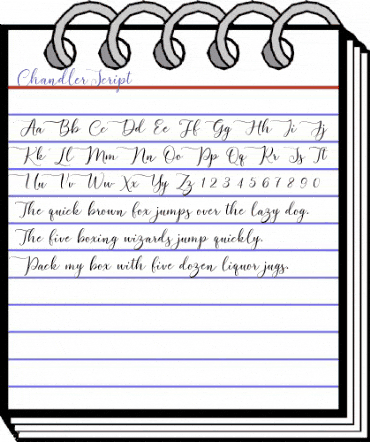 Chandler Script
Aa Bb Cc Dd Ee Ff Gg Hh Ii Jj
Kk Ll Mm Nn Oo Pp Qq Rr Ss Tt
Uu Vv Ww Xx Yy Zz 1 2 3 4 5 6 7 8 9 0
The quick brown fox jumps over the lazy dog.
The five boxing wizards jump quickly.
Pack my box with five dozen liquor jugs.